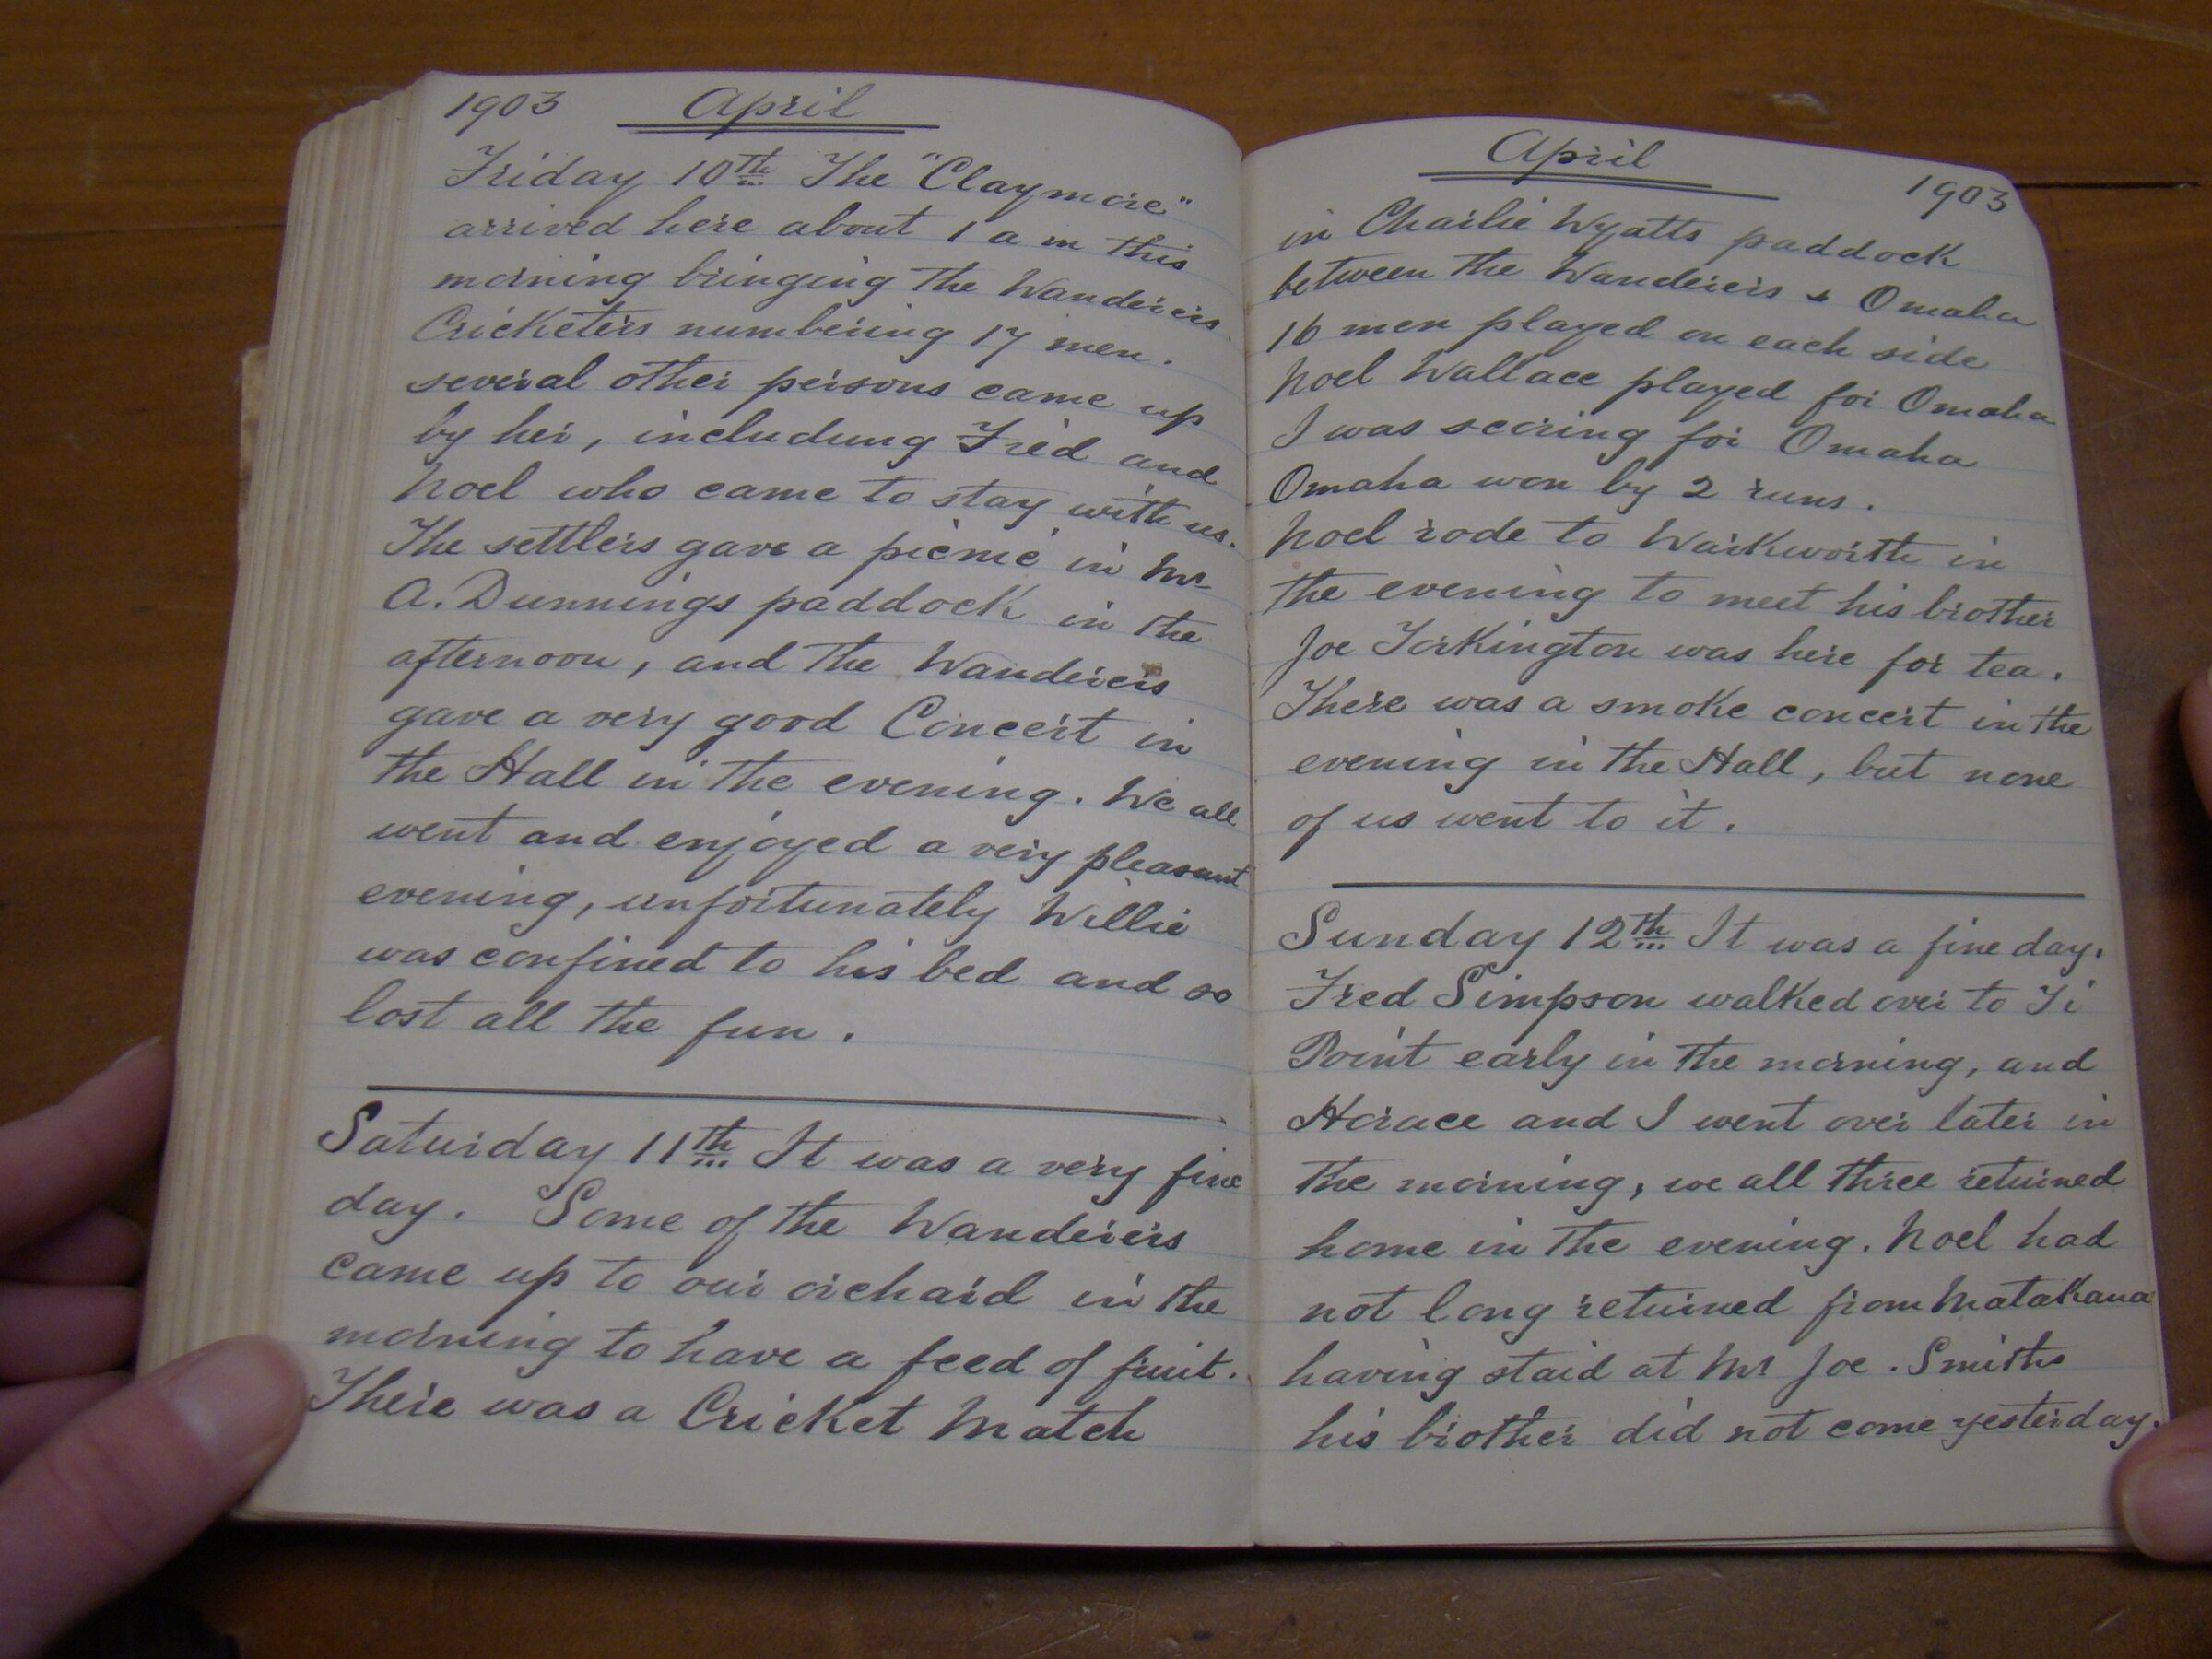 1903 April
Friday 10th The "Claymore"
arrived here about 1 a m this
morning bringing the Wanderers
Cricketers numbering 17 men.
several other persons came up
by her, including Fred and
Noel who came to stay with us.
The settlers gave a picnic in Mr
A. Dunnings paddock in the
afternoon, and the Wanderers
gave a very good Concert in
the Hall in the evening. We all
went and enjoyed a very pleasant
evening, unfortunately Willie
was confined to his bed and so
lost all the fun.
Saturday 11th It was a very fine
day. Some of the Wanderers
came up to our orchard in the
morning to have a feed of fruit.
There was a Cricket Match
April 1903
in Charlie Wyatts paddock
between the Wanderers & Omaha
16 men played on each side
Noel Wallace played for Omaha
I was scoring for Omaha
Omaha won by 2 runs.
Noel rode to Warkworth in
the evening to meet his brother
Joe Torkington was here for tea.
There was a smoke concert in the
evening in the Hall, but none
of us went to it.
Sunday 12th It was a fine day.
Fred Simpson walked over to Ti
Point early in the morning, and
Horace and I went over later in
the morning, we all three returned
home in the evening. Noel had
not long returned from Matakana
having staid at Mr Joe. Smiths
his brother did not come yesterday.